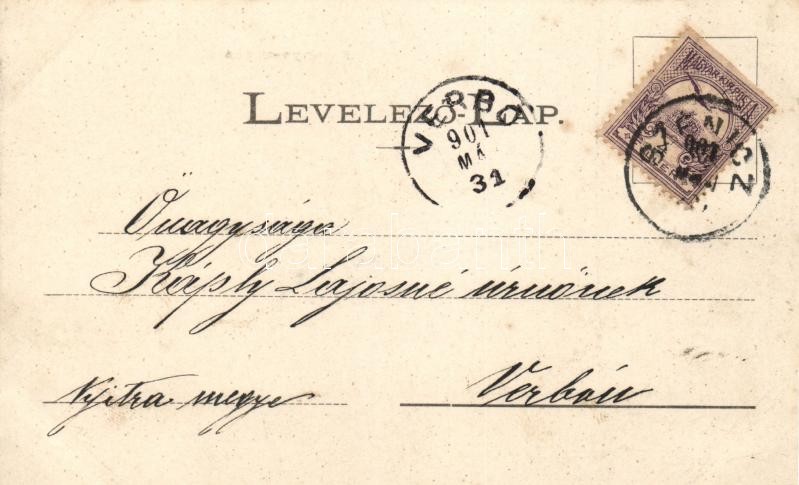 LEVELEZŐ-LAP.
VERBÓ
901
MÁ
31
MAGYAR KIR. POSTA
901
Őnagysága
Káply Lajosné úrnőnek
Nyitra megye
Verbón